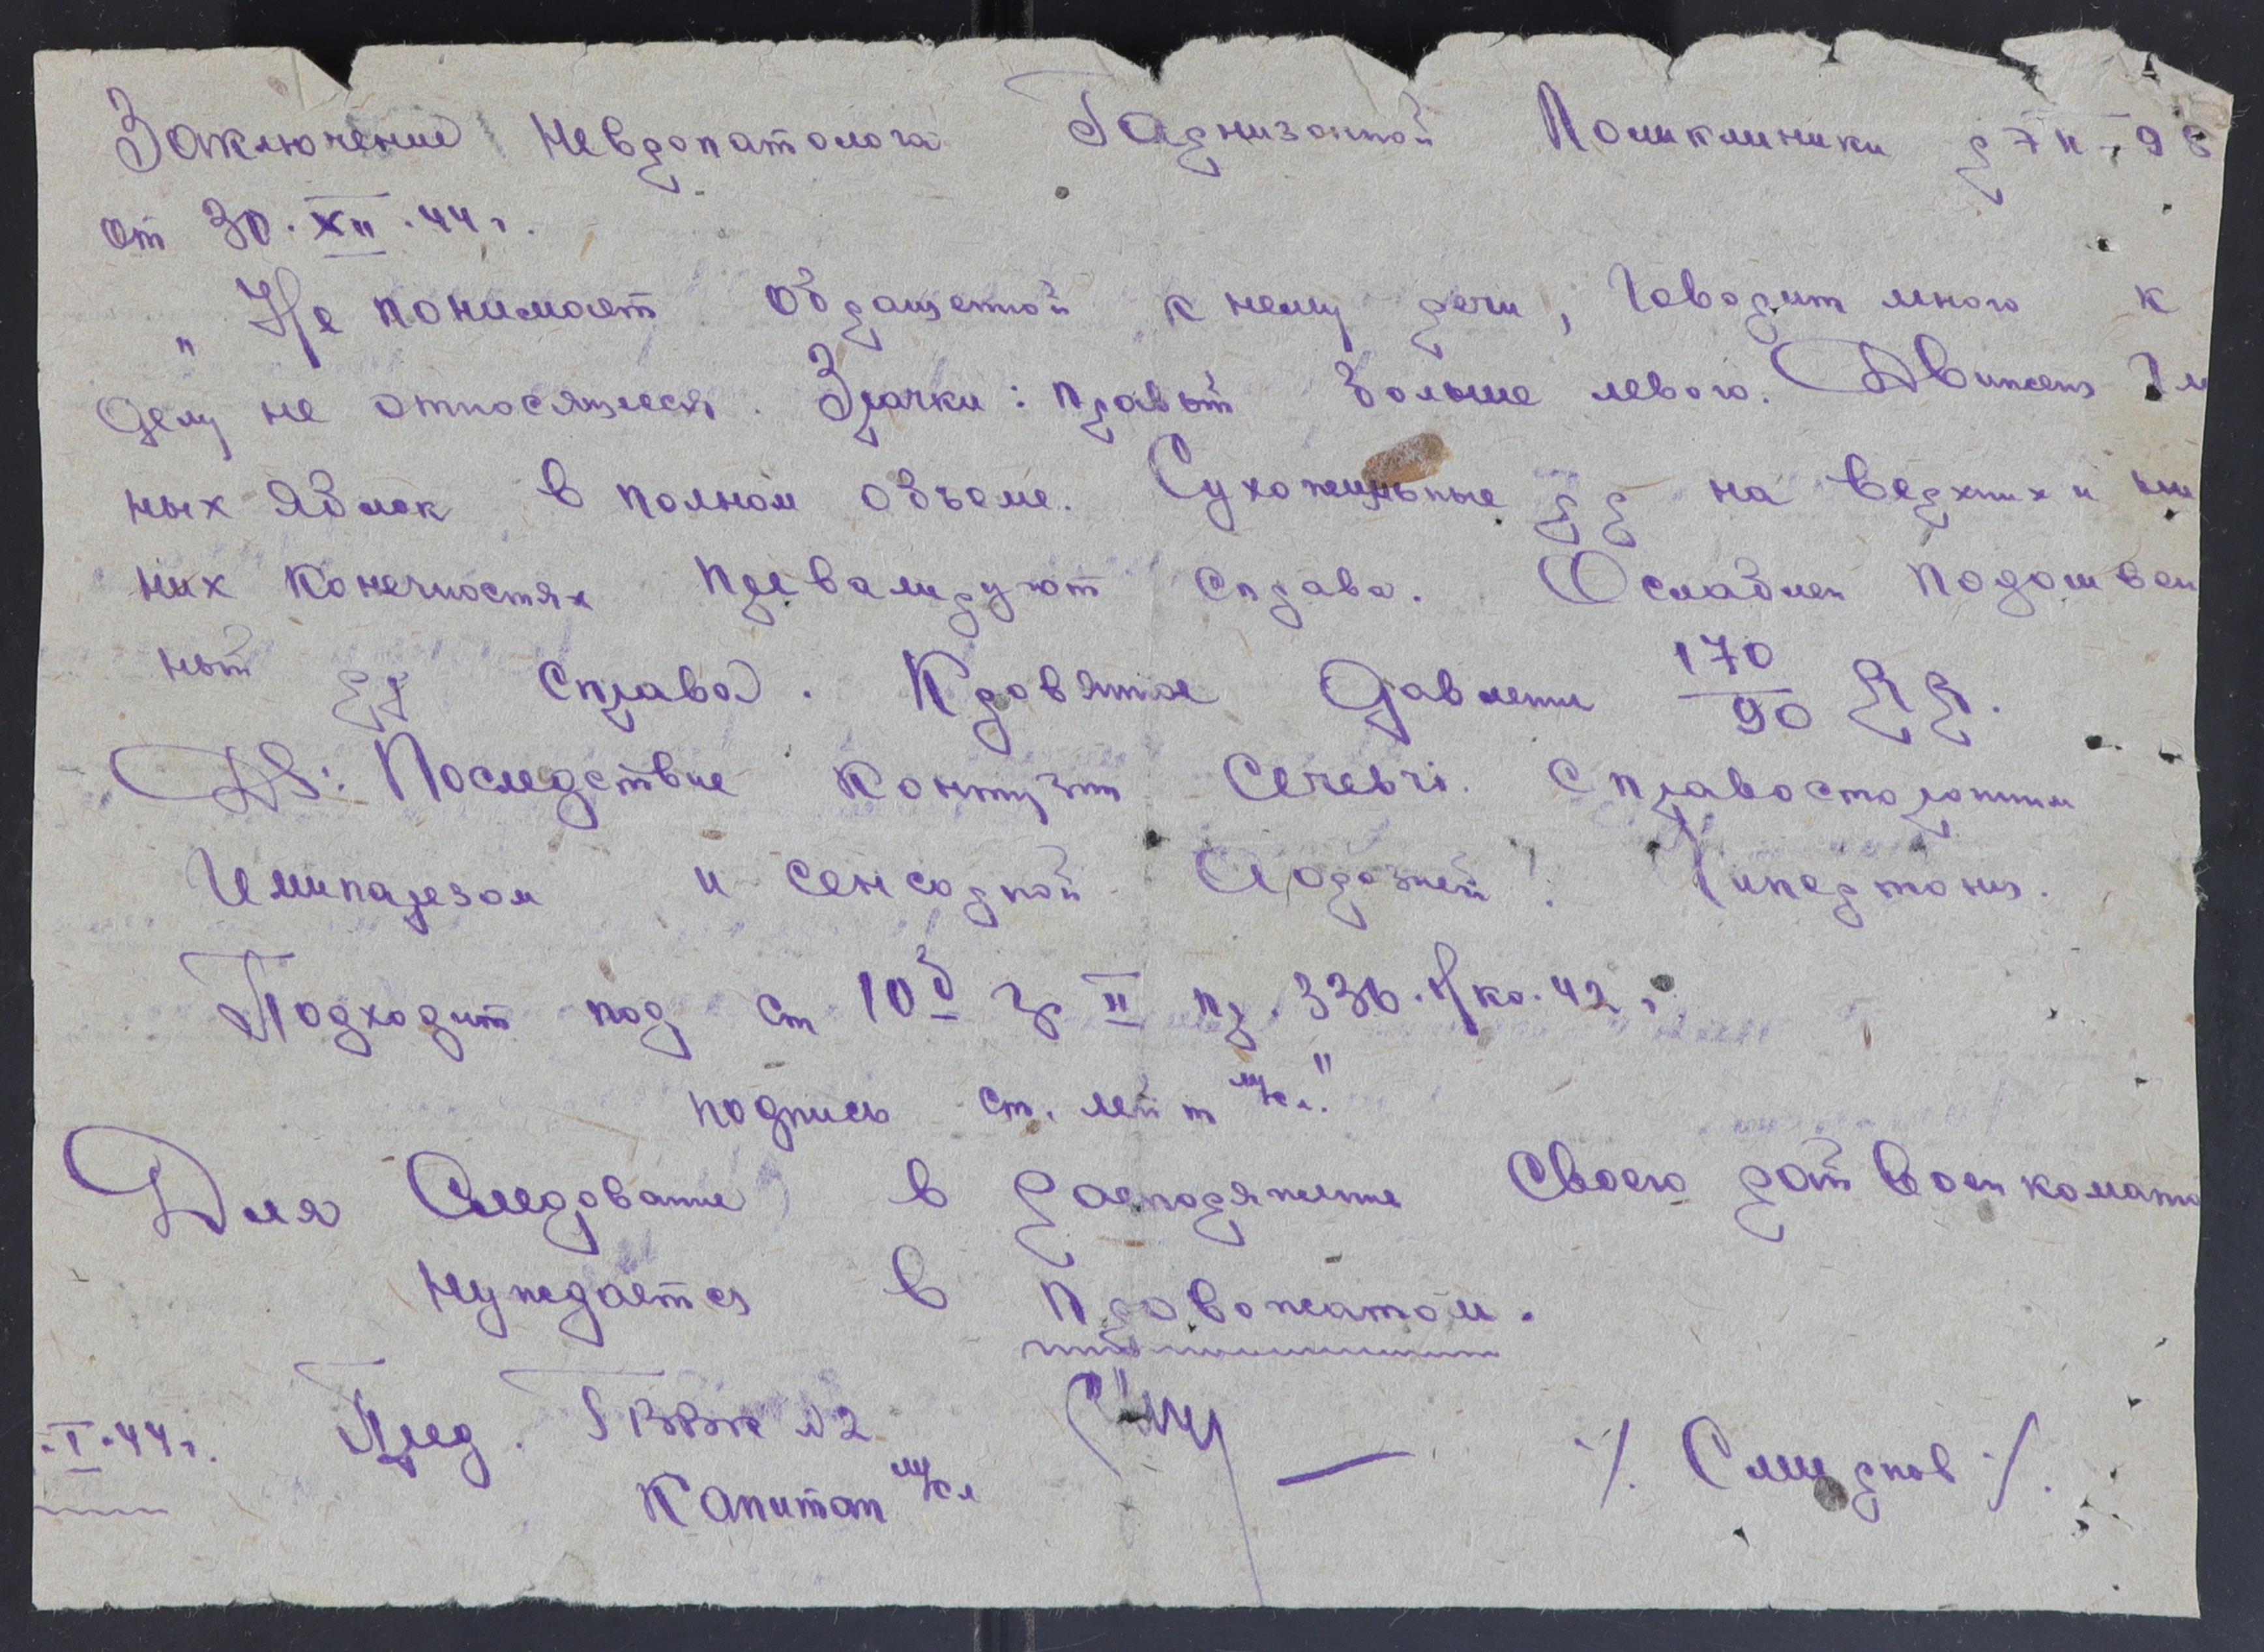 Заключение Невропатолога Гарнизонной Поликлиники
от 30.XII.44 г.
„Не понимает обращенной к нему речи, говорит много к
делу не относящееся. Зрачки: правый больше левого. Движения
ных яблок в полном объеме. Сухожильные рр на верхних и
них конечностях превалируют справа. Ослаблен подошвен
ный рр справа. Кровяное давление 170/90 RR.
DS: Последствие контузии с правосторонним
и сенсорной Гипертония.
Подходит под ст 10б гр II пр. 336. НКО. 42 г.
подпись ст. лейт м/сл."
Для Следование в распоряжение Своего рай военкомата
нуждается в провожатом.
.I.44 г. Пред. ГВВК №2 /. Смирнов /.
Капитан м/сл